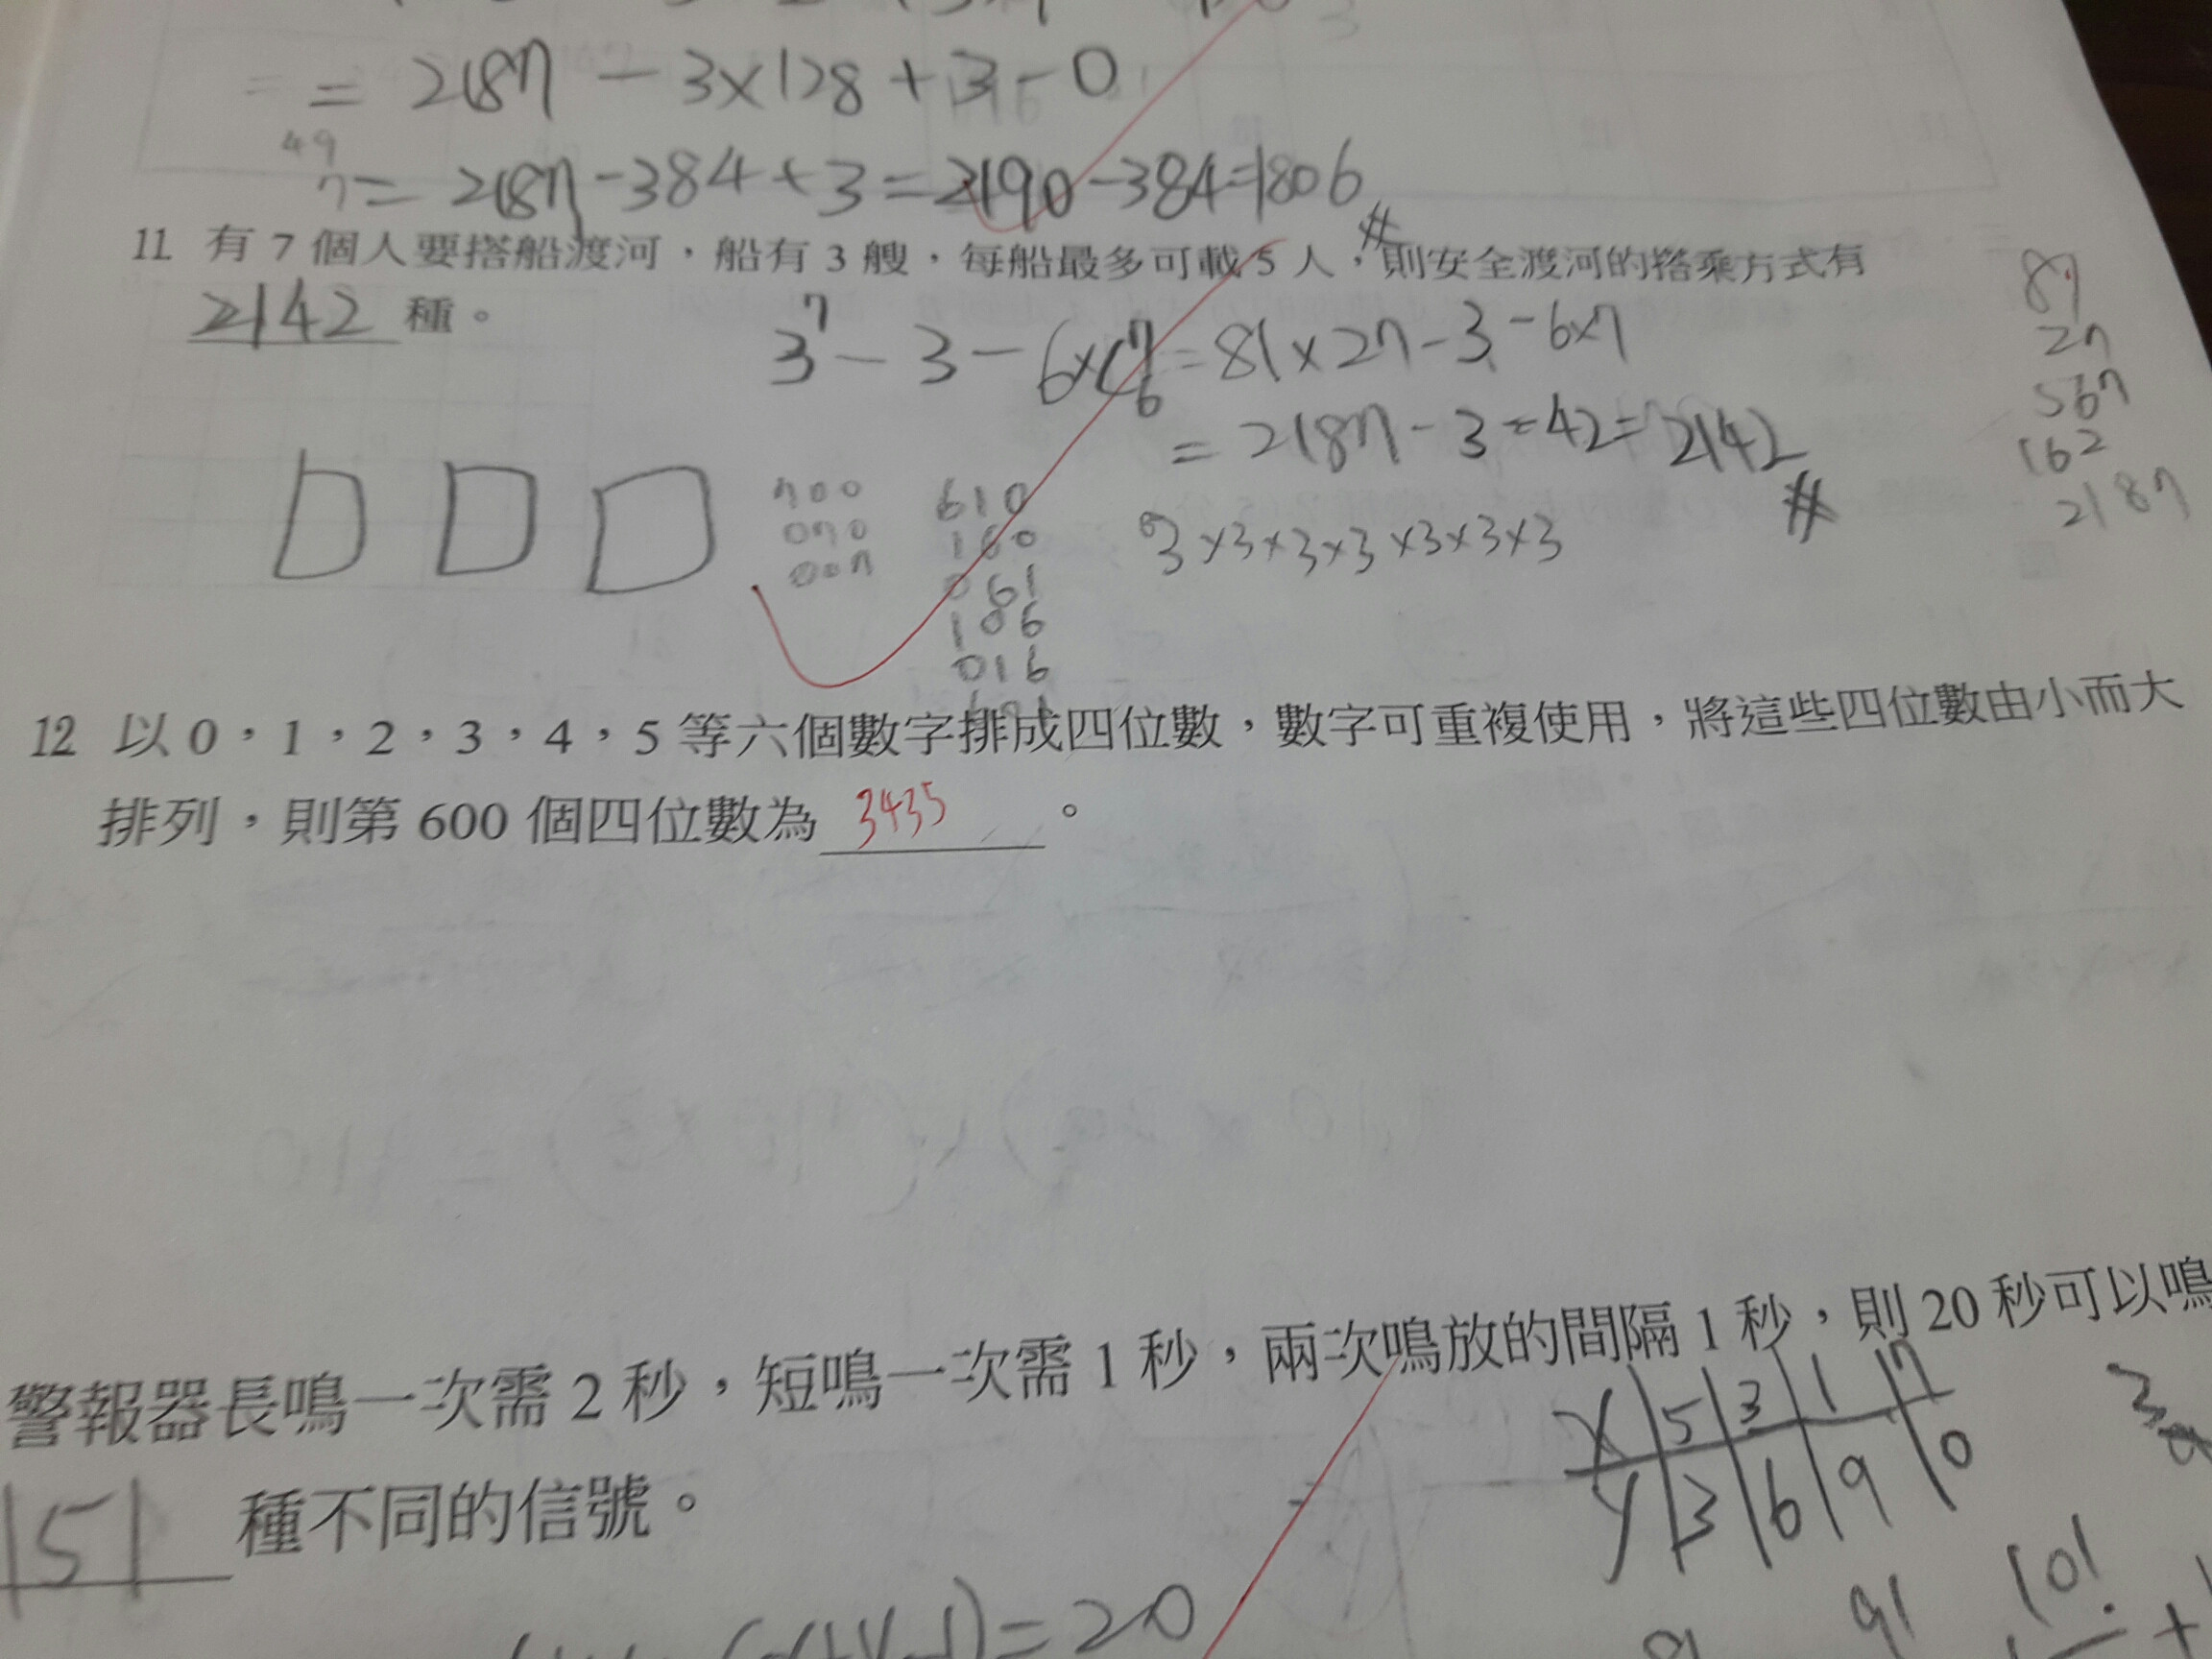 = 2187 - 3×128 + 3 - 0
49
7
= 2187 - 384 + 3 = 2190 - 384 = 1806 #
11 有 7 個人要搭船渡河,船有 3 艘,每船最多可載 5 人,則安全渡河的搭乘方式有
2142 種。
3⁷ - 3 - 6×C⁷₆ = 81×27 - 3 - 6×7
= 2187 - 3 - 42 = 2142 #
81
27
567
162
2187
700
070
007
610
160
061
106
016
601
3×3×3×3×3×3×3
12 以 0,1,2,3,4,5 等六個數字排成四位數,數字可重複使用,將這些四位數由小而大
排列,則第 600 個四位數為 3435 。
警報器長鳴一次需 2 秒,短鳴一次需 1 秒,兩次鳴放的間隔 1 秒,則 20 秒可以鳴
151 種不同的信號。
x 5 3 1 7
y 3 6 9 0
= 20
9!
10!
+